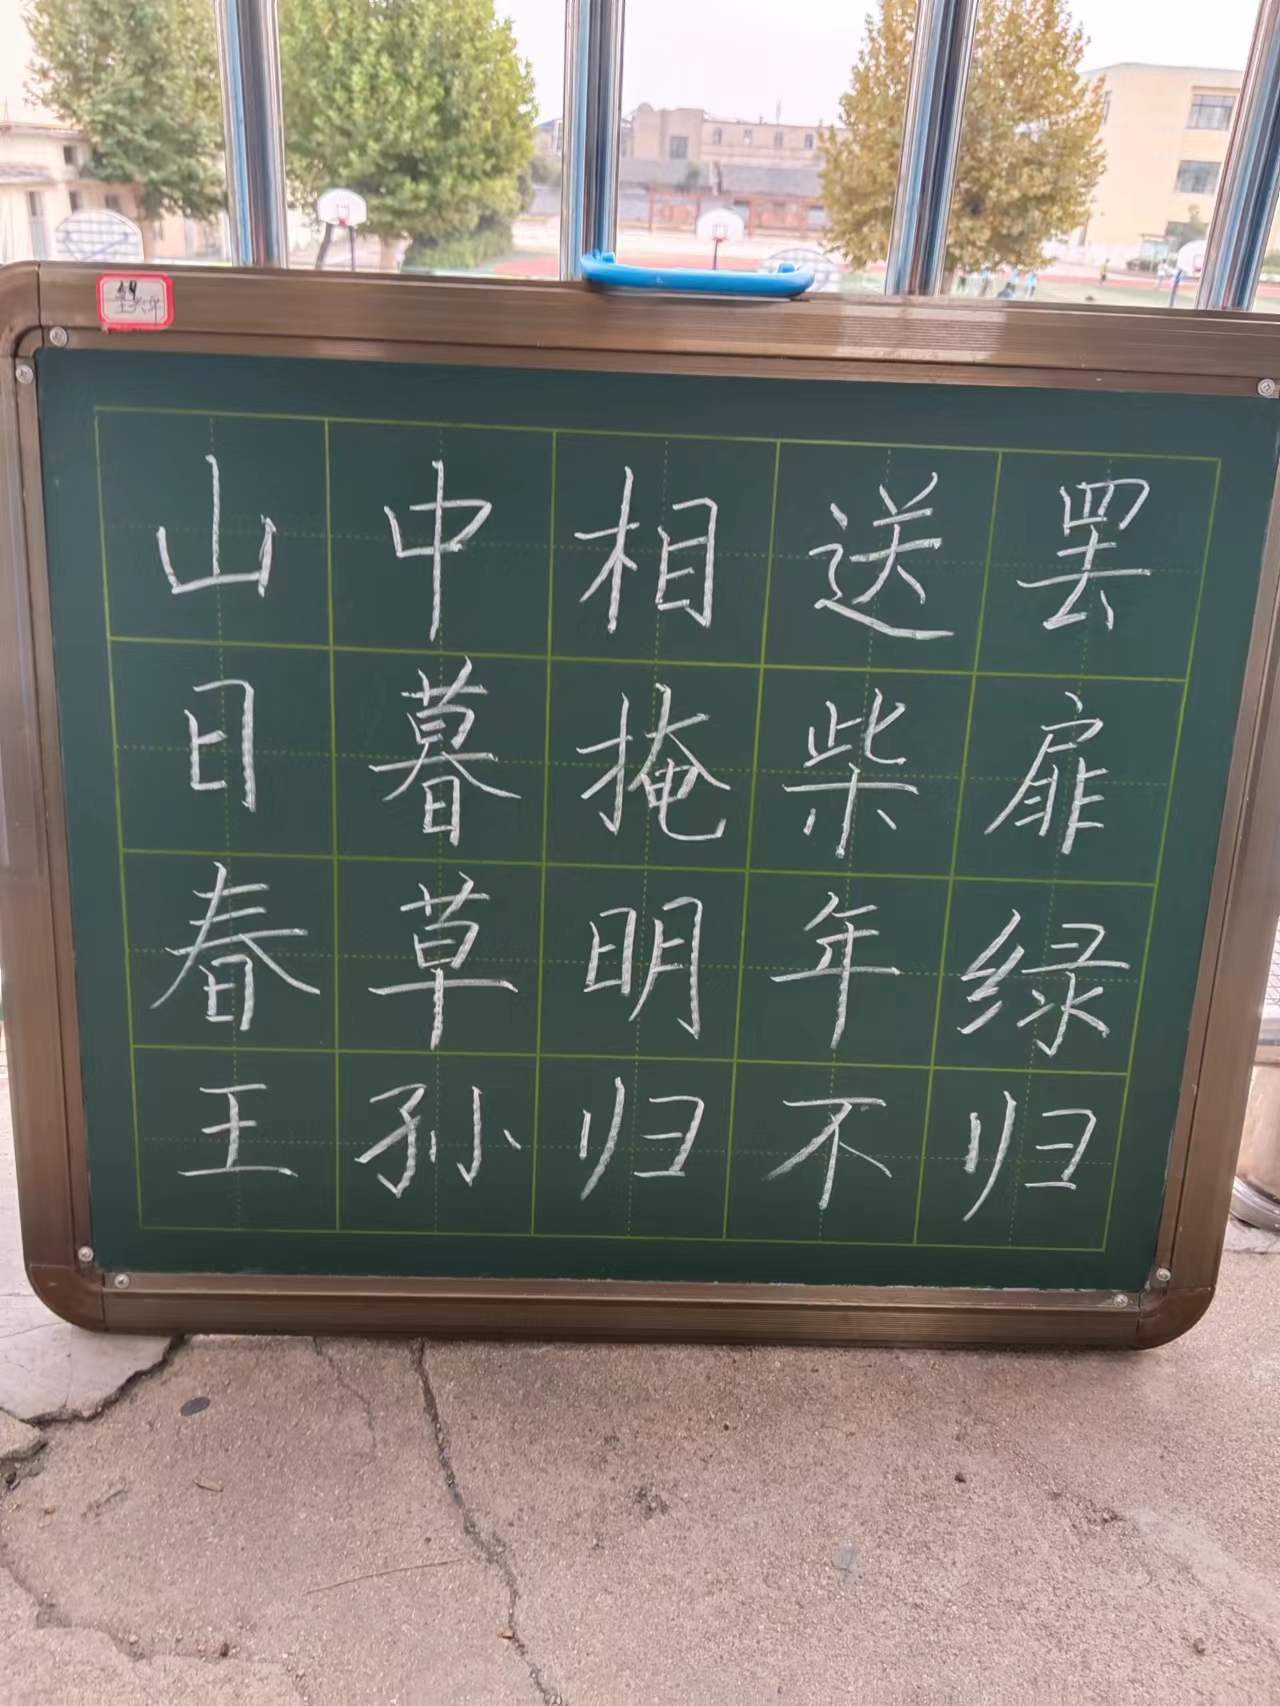 山中相送罢
日暮掩柴扉
春草明年绿
王孙归不归